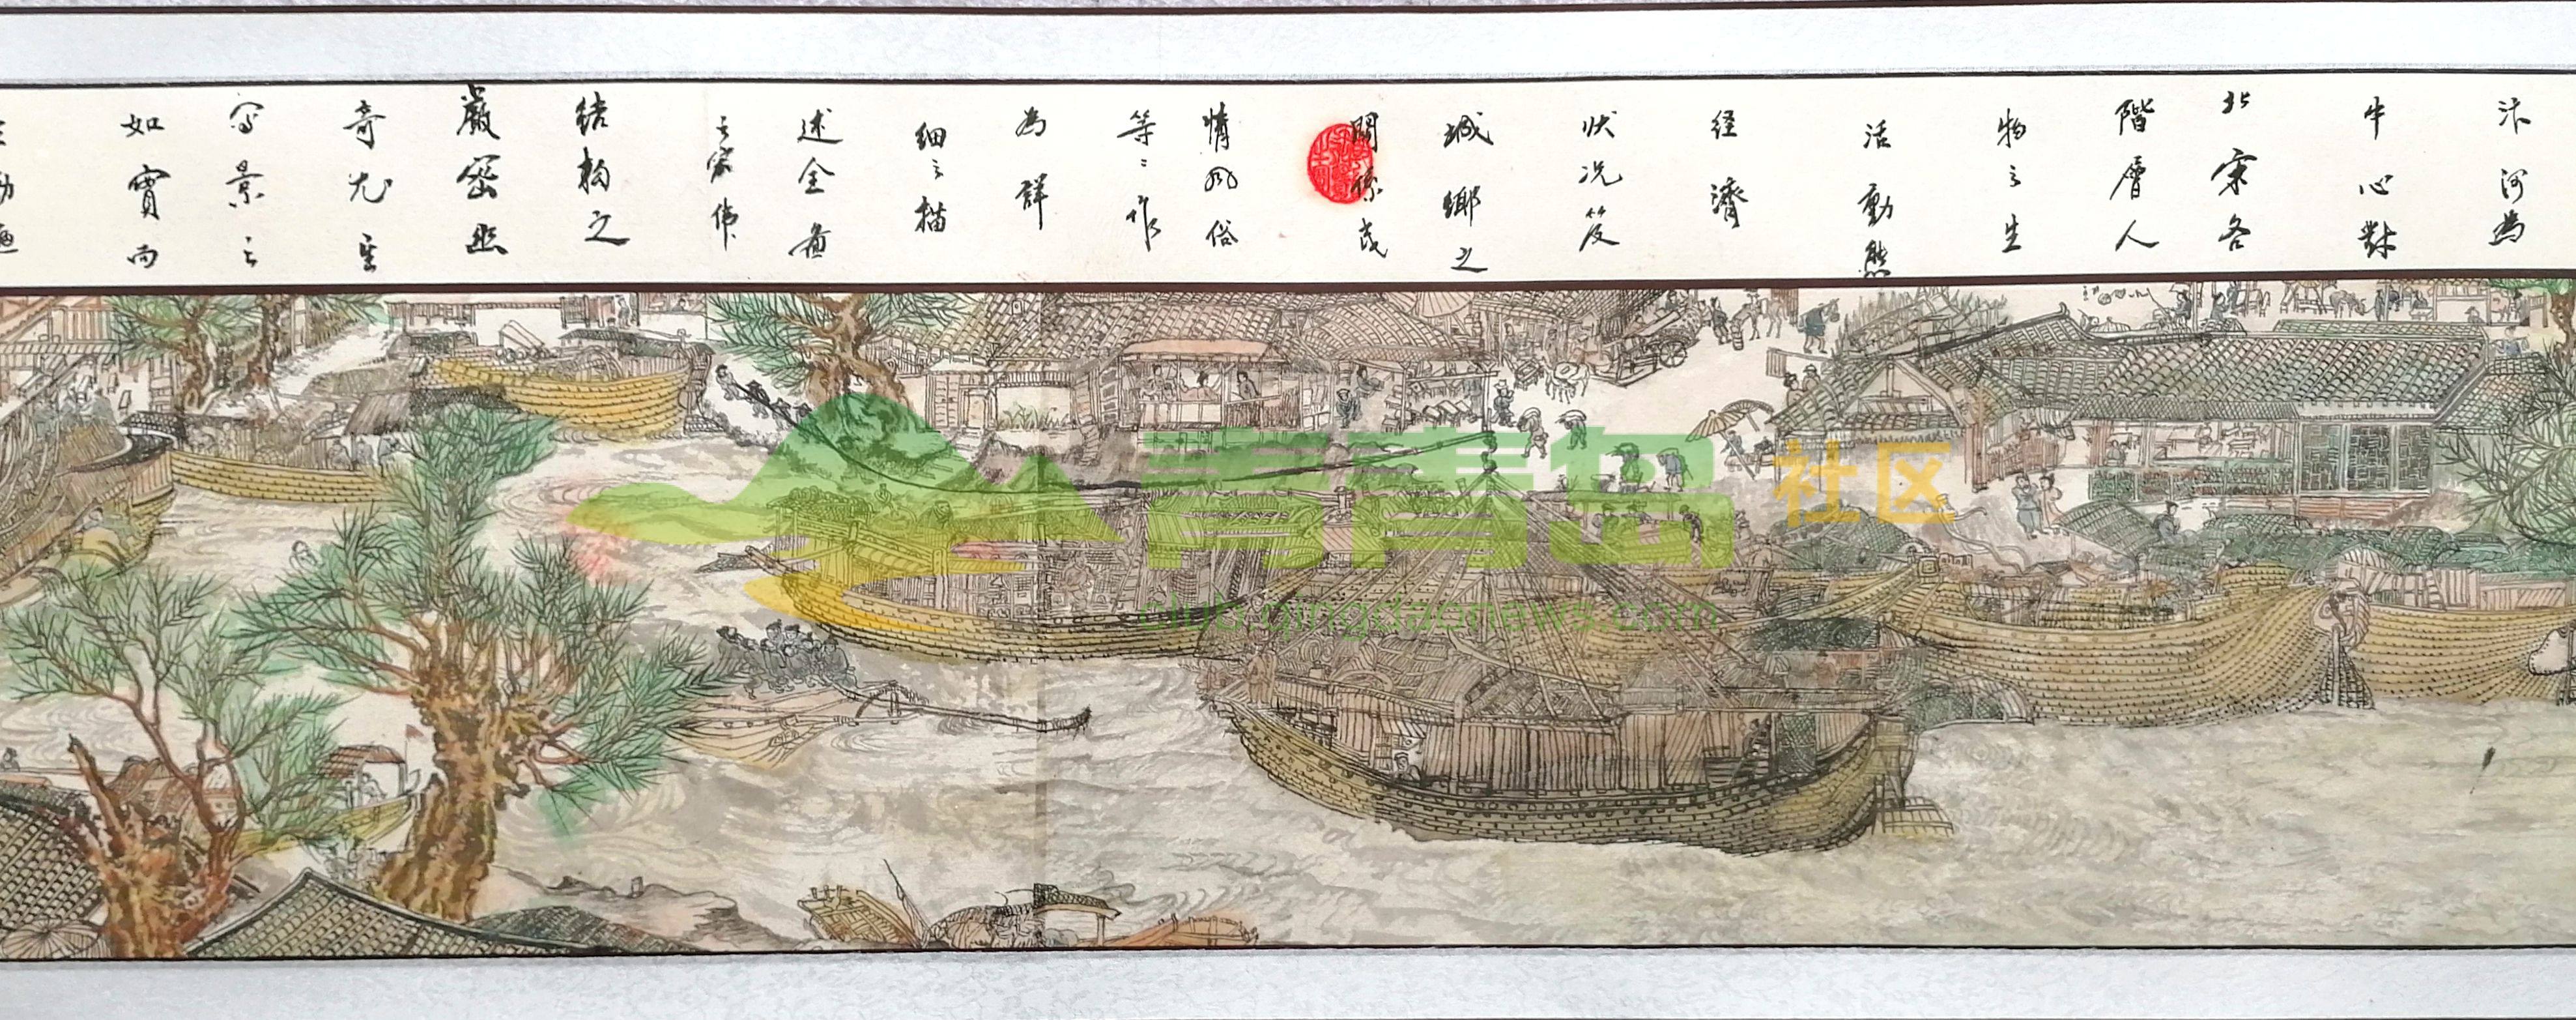 汴河為
中心對
北宋各
階層人
物之生
活動態
経濟
状况及
城鄉之
關係
情風俗
等等作
為詳
細之描
述全畫
之宏偉
結構之
嚴密出
奇尤至
寫景之
如實而
青青岛社区
club.qingdaonews.com